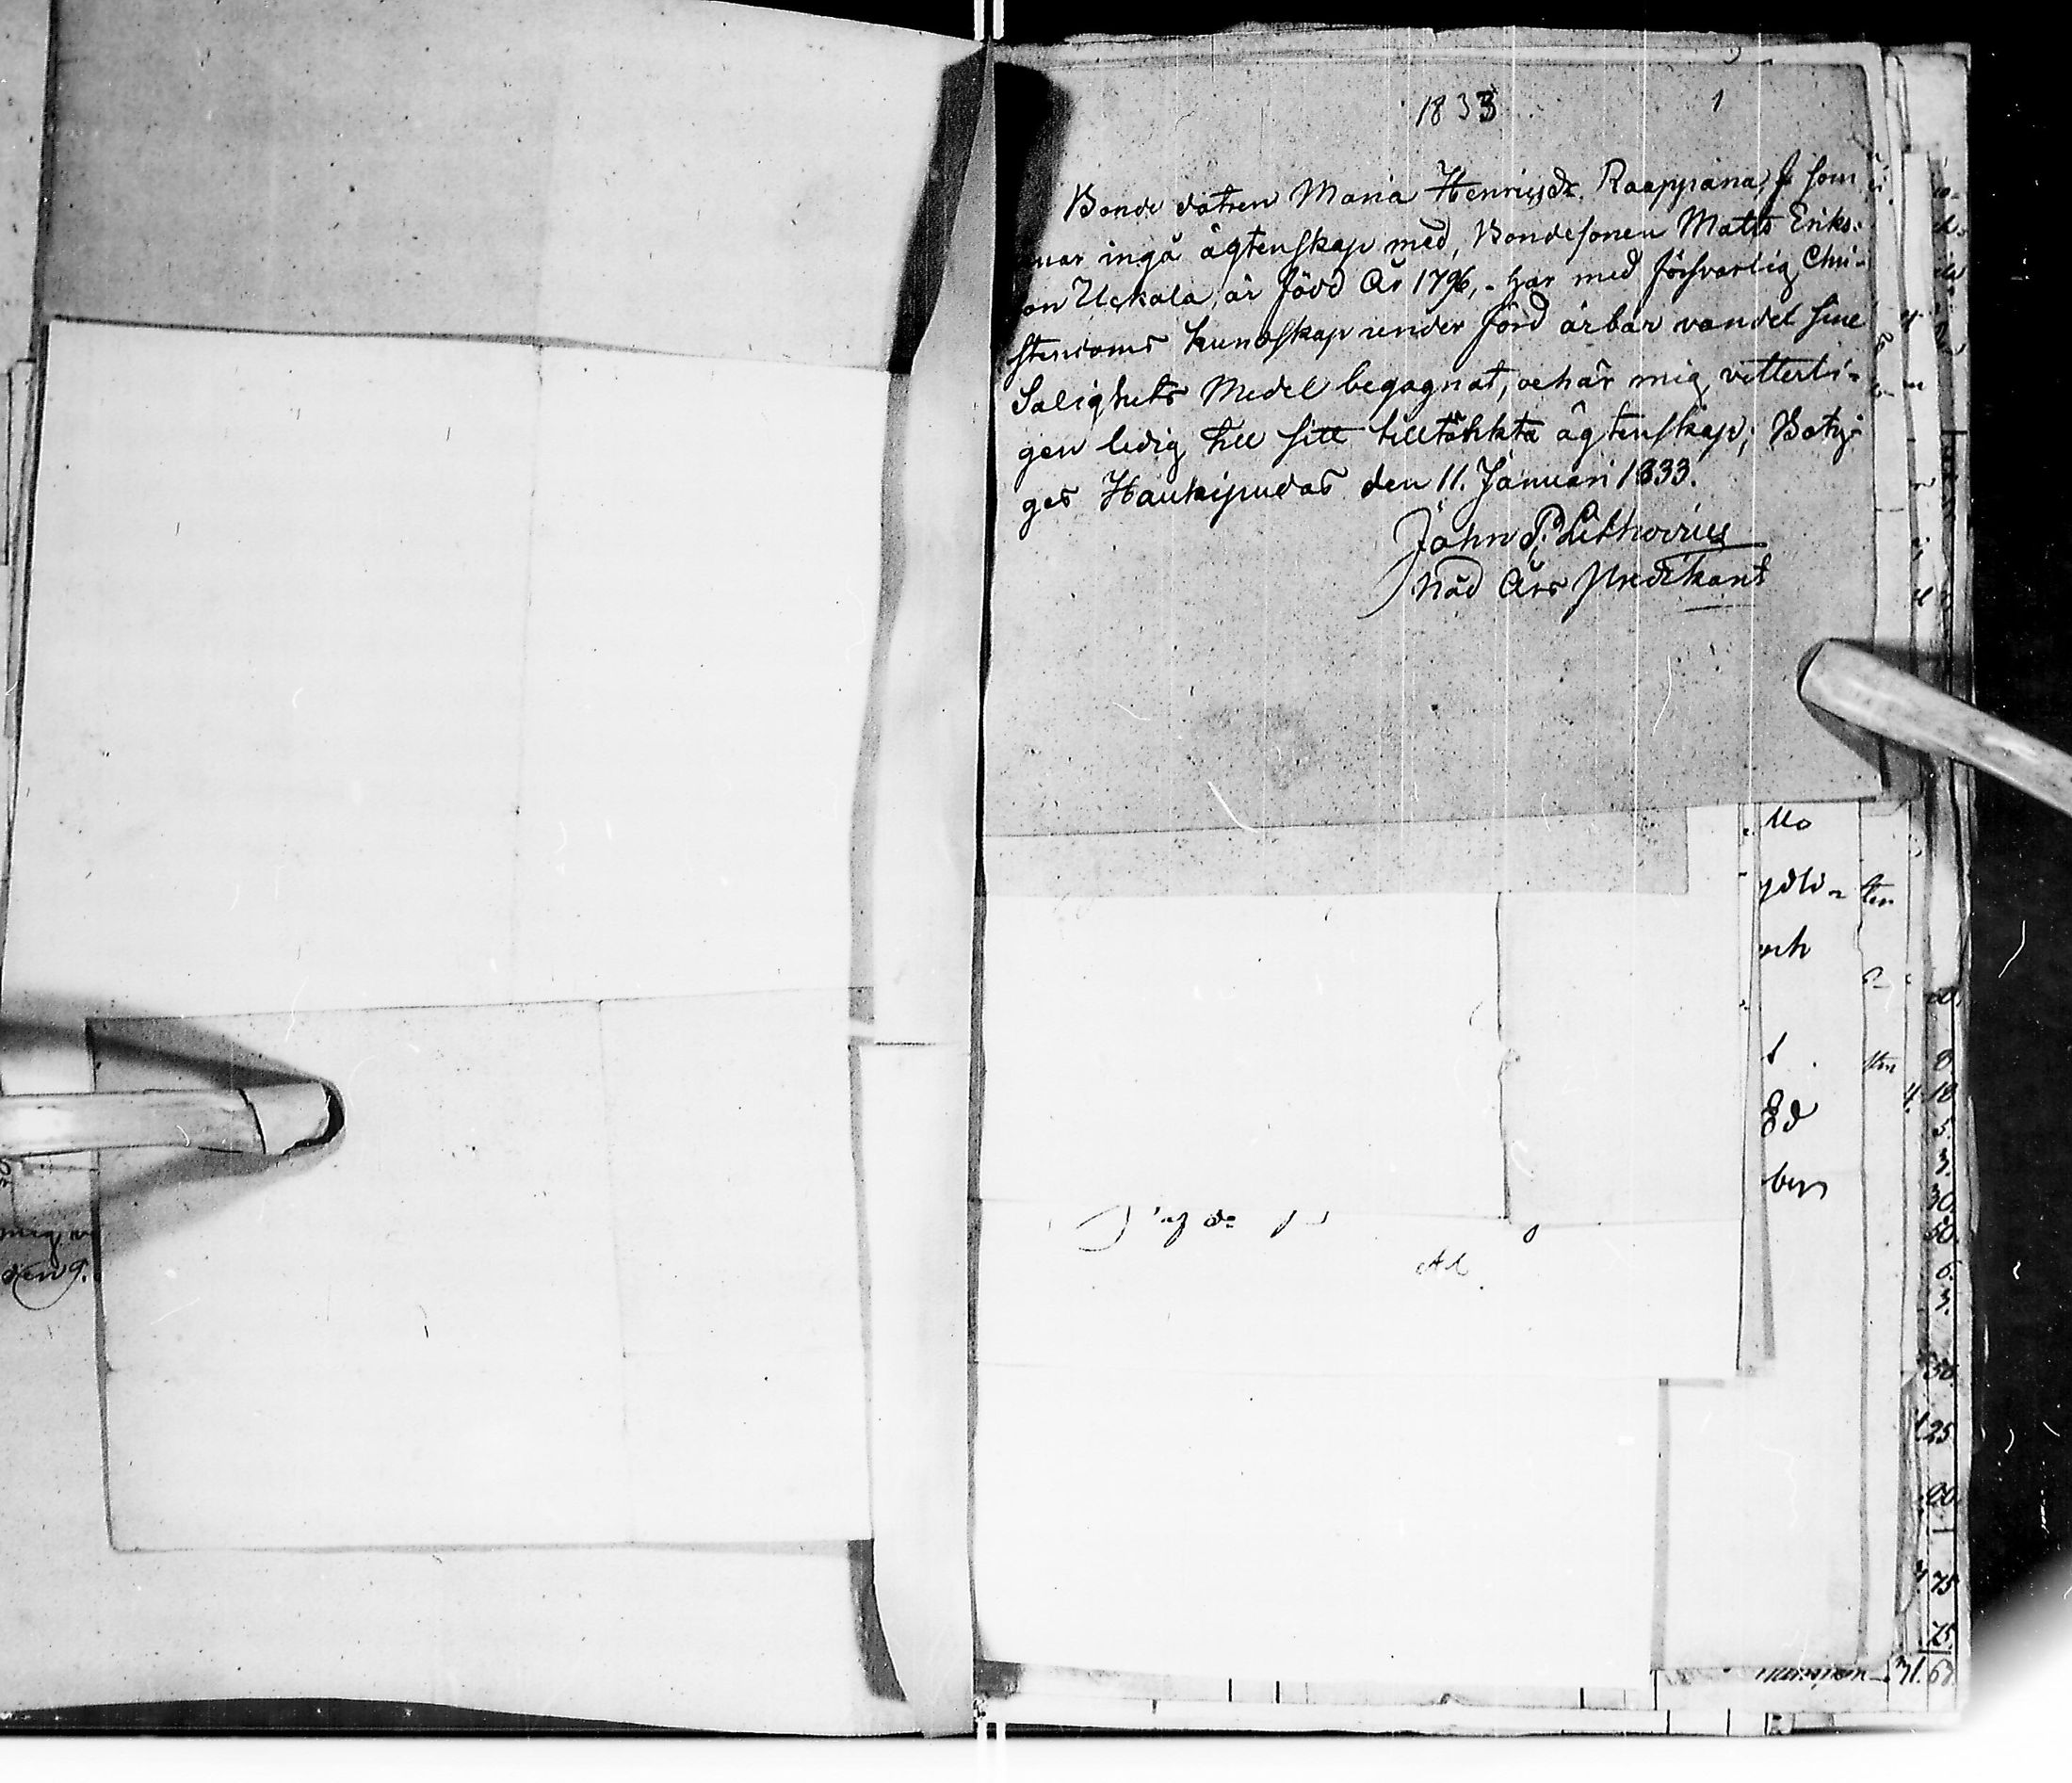 1833 1
Bonde dotren Maria Henricsdr. Raappana, som
nar ingå ägtenskap med, Bondesonen Matts Eriks-
on Uckola, är född år 1796, - har med försvarlig Chri-
stendoms kunskap under förd ärbar vandel sine
Salighets Medel begagnat, och är mig vetterli-
gen ledig till sitt tilltänkta ägtenskap; Betyg-
gas Haukipudas den 11. Januari 1833.
John P. Lithovius
Nåd Års Predikant
mig
den 9.
llo
ydli-
och
t
bern
4. 18
5.
3.
30.
50.
6.
3.
50.
25
00.
75
75.
71. 67.